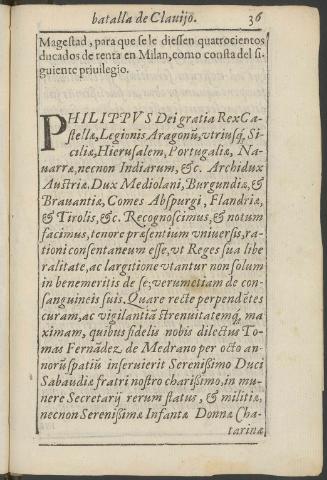 batalla de Clauijo. 36
Magestad, para que se le diessen quatrocientos
ducados de renta en Milan, como consta del si-
guiente priuilegio.
PHILIPPVS Dei gratia Rex Ca-
stellæ, Legionis Aragonũ, vtriusq; Si-
ciliæ, Hierusalem, Portugaliæ, Na-
uarræ, necnon Indiarum, &c. Archidux
Austriæ. Dux Mediolani, Burgundiæ, &
Brauantiæ, Comes Abspurgi, Flandriæ,
& Tirolis, &c. Recognoscimus, & notum
facimus, tenore præsentium vniuersis, ra-
tioni consentaneum esse, vt Reges sua libe
ralitate, ac largitione vtantur non solum
in benemeritis de se; verumetiam de con-
sanguineis suis. Quare recte perpendẽtes
curam, ac vigilantiã strenuitatemq; ma
ximam, quibus fidelis nobis dilectus To-
mas Fernãdez de Medrano per octo an-
norũ spatiũ inseruierit Serenissimo Duci
Sabaudiæ fratri nostro charissimo, in mu-
nere Secretarij rerum status, & militiæ,
necnon Serenissimæ Infantæ Donnæ Cha-
tarinæ